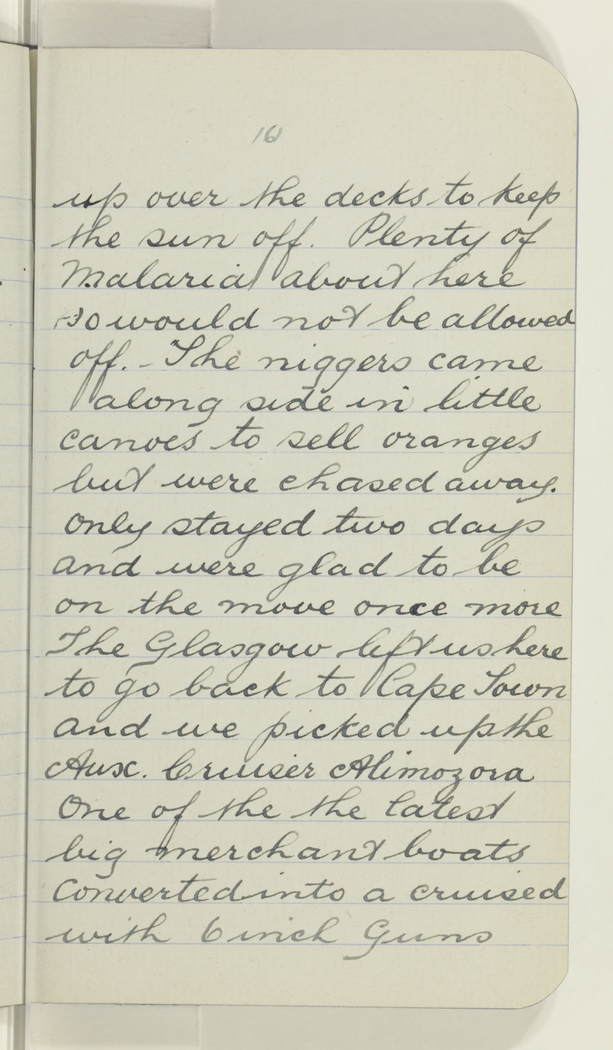 161
up over the decks to keep
the sun off. Plenty of
Malaria about here
so would not be allowed
off. - The niggers came
along side in little
canoes to sell oranges
but were chased away.
Only stayed two days
and were glad to be
on the move once more
The Glasgow left us here
to go back to Cape Town
and we picked up the
Aux. Cruiser Almozora
One of the the latest
big merchant boats
Converted into a cruised
with 6 inch Guns